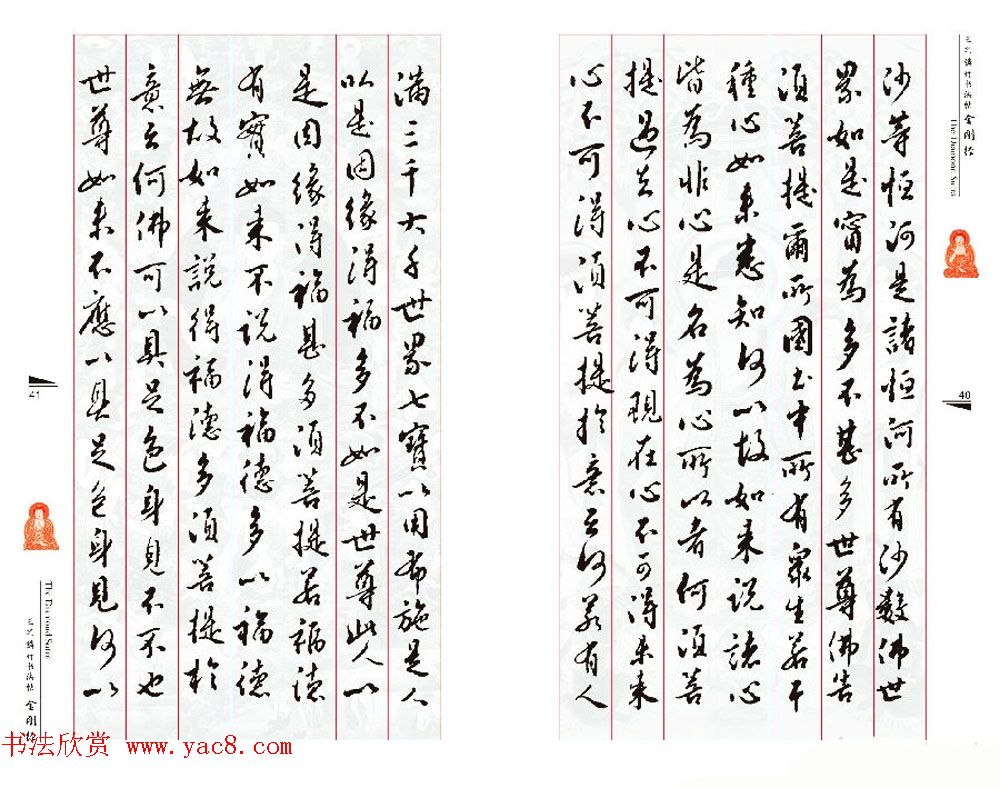 金剛經
The Diamond Sutra
40
沙等恒河是諸恒河所有沙數佛世
界如是甯為多不甚多世尊佛告
須菩提爾所國土中所有衆生若干
種心如来悉知何以故如来說諸心
皆為非心是名為心所以者何須菩
提過去心不可得現在心不可得未来
心不可得須菩提於意云何若有人
滿三千大千世界七寶以用布施是人
以是因緣得福多不如是世尊此人以
是因緣得福甚多須菩提若福德
有實如来不說得福德多以福德
無故如来說得福德多須菩提於
意云何佛可以具足色身見不不也
世尊如来不應以具足色身見何以
41
The Diamond Sutra
金剛經
书法欣赏 www.yac8.com